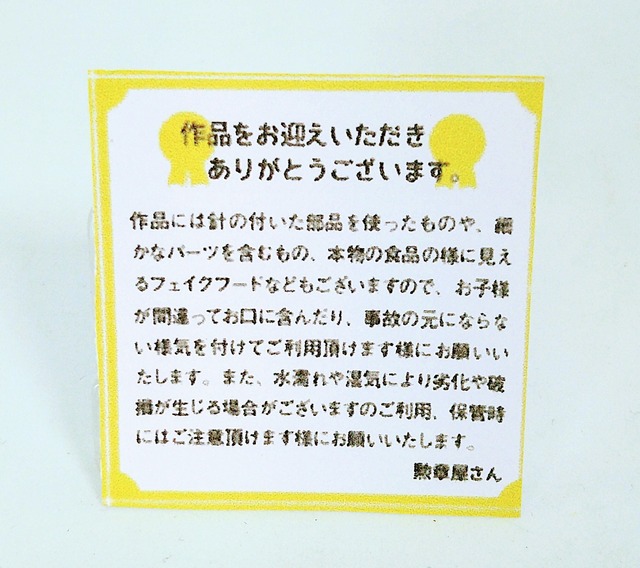 作品をお迎えいただき
ありがとうございます。
作品には針の付いた部品を使ったものや、細
かなパーツを含むもの、本物の食品の様に見え
るフェイクフードなどもございますので、お子様
が間違ってお口に含んだり、事故の元にならな
い様気を付けてご利用頂けます様にお願いい
たします。また、水濡れや湿気により劣化や破
損が生じる場合がございますのご利用、保管時
にはご注意頂けます様にお願いいたします。
勲章屋さん